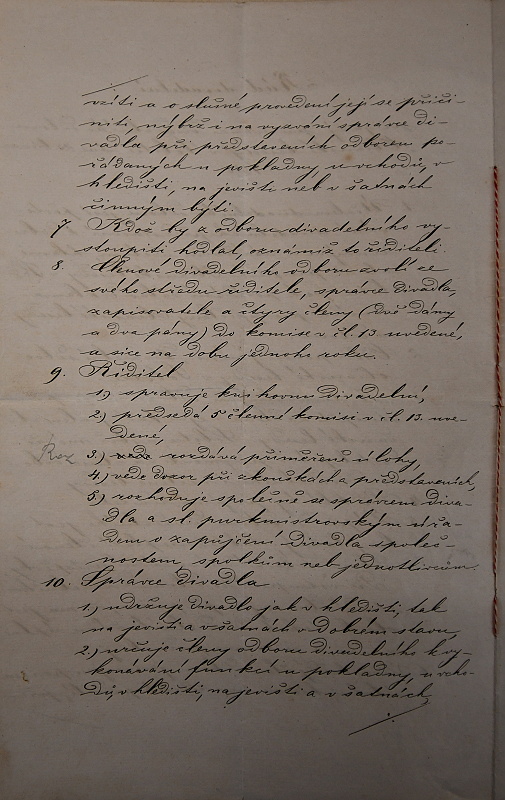 vzíti a o slušné provedení její se přiči-
niti, nýbrž i na vyzvání správce di-
vadla při představeních odborem po-
řádaných u pokladny, u vchodů, v
hledišti, na jevišti neb v šatnách
činným býti.
7 Kdož by z odboru divadelního vy-
stoupiti hodlal, oznámiž to řediteli.
8. Členové divadelního odboru zvolí ze
svého středu ředitele, správce divadla,
zapisovatele a čtyry členy (dvě dámy
a dva pány) do komise v čl. 13 uvedené,
a sice na dobu jednoho roku.
9. Řiditel
1.) spravuje knihovnu divadelní,
2.) předsedá 5 členné komisi v čl. 13. uve-
dené,
Roz 3.) vede rozdává přiměřené úlohy,
4.) vede dozor při zkouškách a představeních,
5.) rozhoduje společně se správcem diva-
dla a sl. purkmistrovským úřa-
dem o zapůjčení divadla společ-
nostem, spolkům neb jednotlivcům.
10. Správce divadla
1.) udržuje divadlo jak v hledišti, tak
na jevišti a v šatnách v dobrém stavu,
2.) určuje členy odboru divadelního k vy-
konávání funkcí u pokladny, u vcho-
dů, v hledišti, na jevišti a v šatnách,